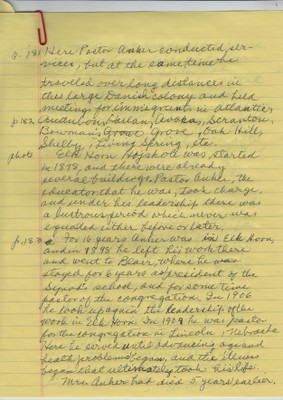 p. 181 Here Pastor Anker conducted ser-
vices, but at the same time he
traveled over long distances in
this large Danish colony and held
meetings for immigrants in Atlantic,
p. 182 Audubon, Harlan, Avoca, Scranton,
Bowman's Grove, Oak Hill,
Shelby, Living Spring, etc.
photo Elk Horn Højskole was started
in 1878, and there were already
several buildings. Pastor Anker, the
educator that he was, took charge.
and under his leadership there was
a period which never was
equaled either before or later.
p. 183 For 16 years Anker was in Elk Horn,
and in 1898 he left his work there
and went to Blair, where he was
stayed for 6 years as president of the
Synod's school, and for some time
pastor of the congregation. In 1906
he took up again the leadership of the
work in Elk Horn. In 1909 he was pastor
for the congregation in Lincoln Nebraska
Here he served until advancing age and
health problems began, and the illness
began that ultimately took his life.
Mrs. Anker had died 5 years earlier.